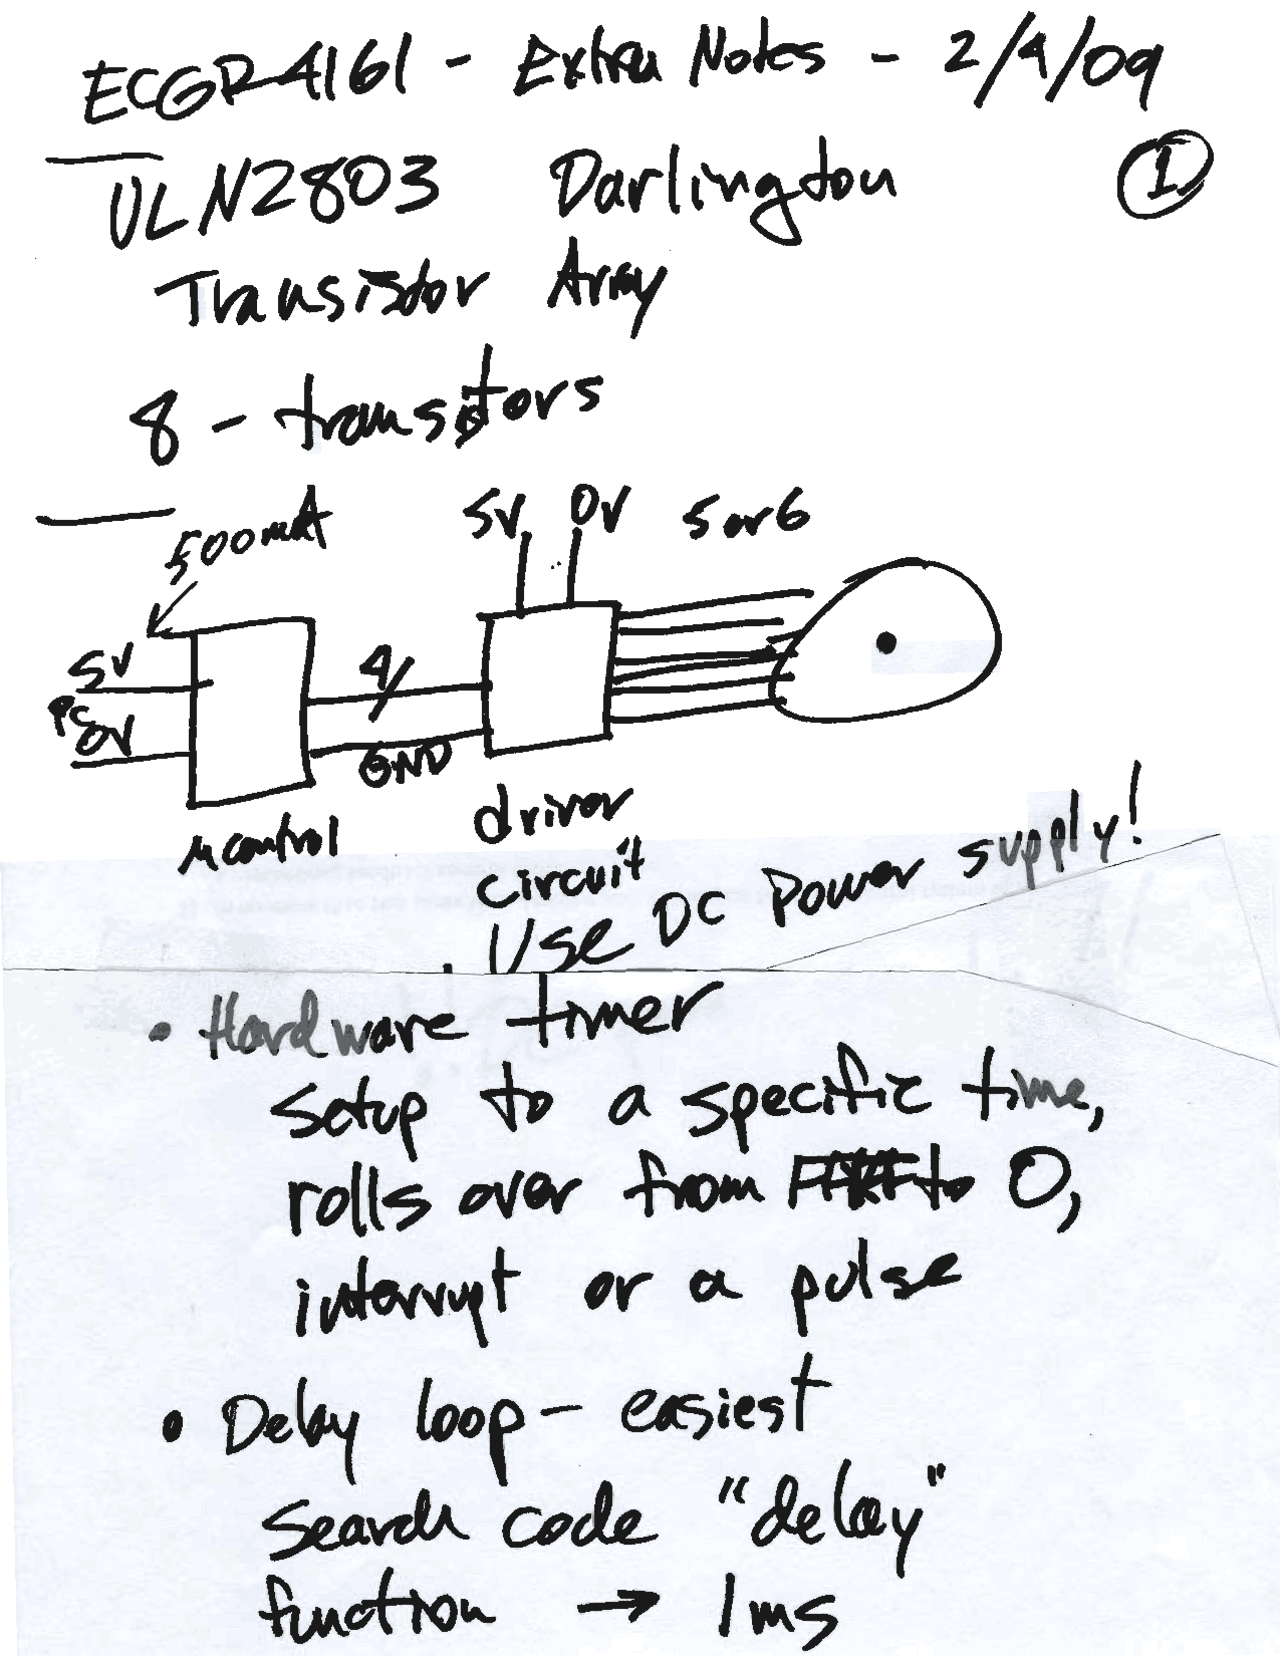 ECGR4161 - Extra Notes - 2/4/09
ULN2803 Darlington
1
Transistor Array
8 - transistors
500mA
5V 0V 5 or 6
5V
4
PC
0V
GND
μcontrol
driver
circuit
Use DC Power supply!
• Hardware timer
setup to a specific time,
rolls over from to 0,
interrupt or a pulse
• Delay loop - easiest
search code "delay"
function → 1ms